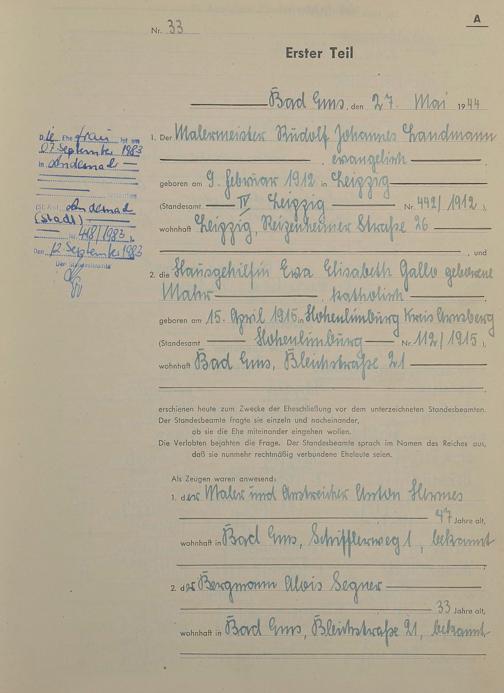 A
Nr. 33
Erster Teil
Bad Ems, den 27. Mai 1944
1. Der Malermeister Rudolf Johannes Landmann
evangelisch
geboren am 9. Februar 1912 in Leipzig
(Standesamt IV Leipzig Nr. 442/1912),
wohnhaft Leipzig, Reizenheimer Straße 26
, und
2. die Hausgehilfin Ewa Elisabeth Gallo geborene
Mahr katholisch
geboren am 15. April 1915 in Hohenlimburg Kreis Arnsberg
(Standesamt Hohenlimburg Nr. 112/1915),
wohnhaft Bad Ems, Bleichstraße 21
erschienen heute zum Zwecke der Eheschließung vor dem unterzeichneten Standesbeamten.
Der Standesbeamte fragte sie einzeln und nacheinander,
ob sie die Ehe miteinander eingehen wollen.
Die Verlobten bejahten die Frage. Der Standesbeamte sprach im Namen des Reiches aus,
daß sie nunmehr rechtmäßig verbundene Eheleute seien.
Als Zeugen waren anwesend:
1. der Maler und Anstreicher Anton Hermes
47 Jahre alt,
wohnhaft in Bad Ems, Schifflerweg 1, bekannt
2. der Bergmann Alois Segner
33 Jahre alt,
wohnhaft in Bad Ems, Bleichstraße 21, bekannt
Die Ehefrau ist am
07. September 1983
in Andernach
(St. Amt Andernach
(Stadt)
Nr. 418/1983)
Den 12. September 1983
Der Standesbeamte